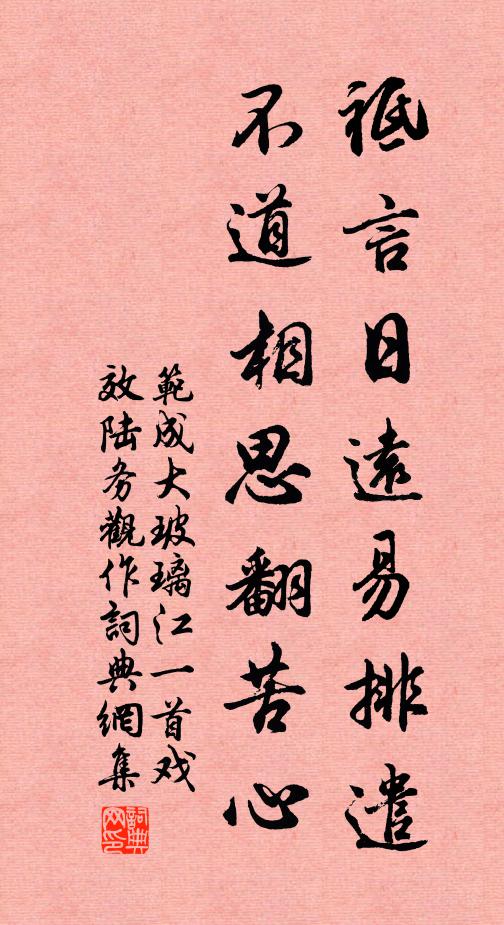 祗言日遠易排遣
不道相思翻苦心
範成大玻璃江一首戏
效陆务觀作詞典網集
詞典网印